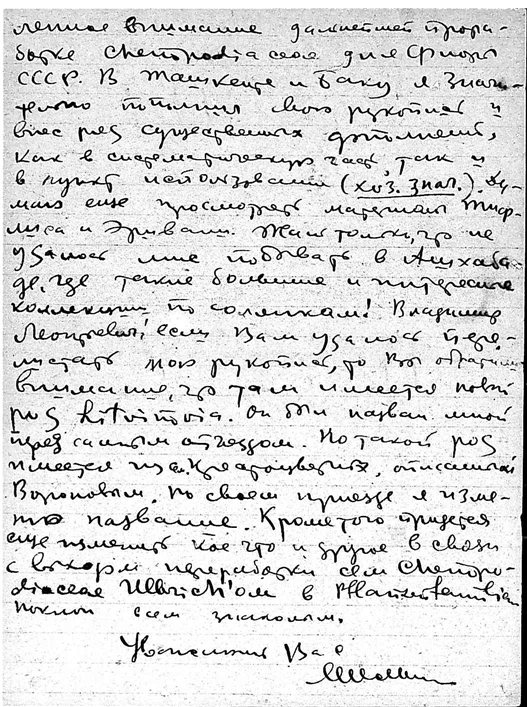 ленное внимание дальнейшей прора-
ботке Chenopodiaceae для Флоры
СССР. В Ташкенте и Баку я значи-
тельно пополнил свою рукопись и
внес ряд существенных дополнений,
как в систематическую часть, так и
в пункт использования (хоз. знач.). Ду-
маю еще просмотреть материалы Тиф-
лиса и Эривани. Жаль только, что не
удалось мне побывать в Ашхаба-
де, где такие большие и интересные
коллекции по солянкам! Владимир
Леонтьевич! если Вам удалось пере-
листать мою рукопись, то Вы обратили
внимание, что там имеется новый
род Litvinovia. Он был назван мной
перед самым отъездом. Но такой род
имеется из Крестоцветных, описанный
Вороновым. По своем приезде я изме-
ню название. Кроме того придется
еще изменить кое что и другое в связи
с выходом переработки сем Chenopo-
diaceae Ulbrich'ом в Pflanzenfamilien
поклон всем знакомым.
Уважающий Вас